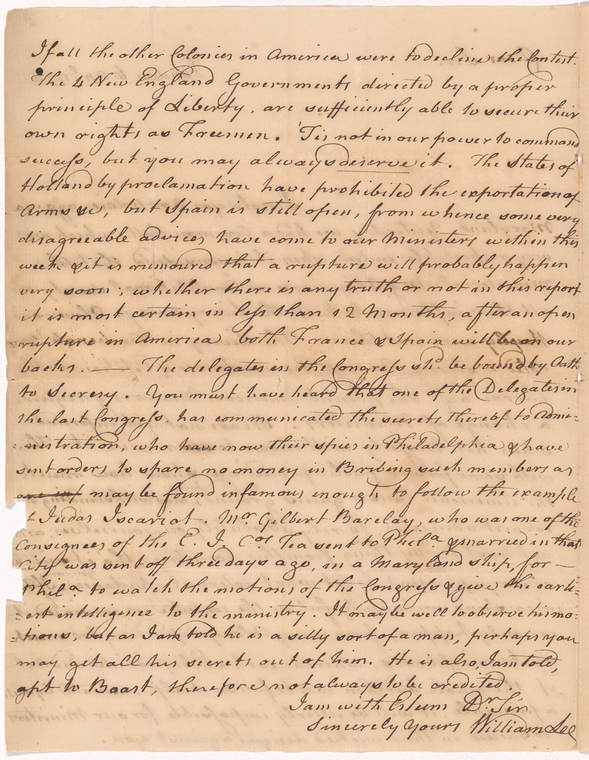 If all the other Colonies in America were to decline the Contest.
The 4 New England Governments directed by a proper
principle of Liberty, are sufficiently able to secure their
own rights as Freemen. 'Tis not in our power to command
success, but you may always deserve it. The States of
Holland by proclamation have prohibited the exportation of
Arms &c, but Spain is still open, from whence some very
disagreeable advices have come to our Ministers within this
week & it is rumoured that a rupture will probably happen
very soon; whether there is any truth or not in this report
it is most certain in less than 12 Months, after an open
rupture in America both France & Spain will be on our
backs. — The delegates in the Congress shd. be bound by Oath
to secresy. You must have heard that one of the Delegates in
the last Congress, has communicated the secrets thereof to Admi=
=nistration, who have now their spies in Philadelphia & have
sent orders to spare no money in Bribing such members as
may be found infamous enough to follow the example
f Judas Iscariot. Mr Gilbert Barclay, who was one of the
Consignees of the E. I. Cos Tea sent to Phila. & married in that
City was sent off three days ago, in a Maryland ship, for —
Phila. to watch the motions of the Congress & give the earli=
=est intelligence to the ministry. It may be well to observe his mo=
=tions, but as I am told he is a silly sort of a man, perhaps you
may get all his secrets out of him. He is also, I am told,
apt to Boast, therefore not always to be credited.
I am with Esteem Dr. Sir
Sincerely Yours William Lee